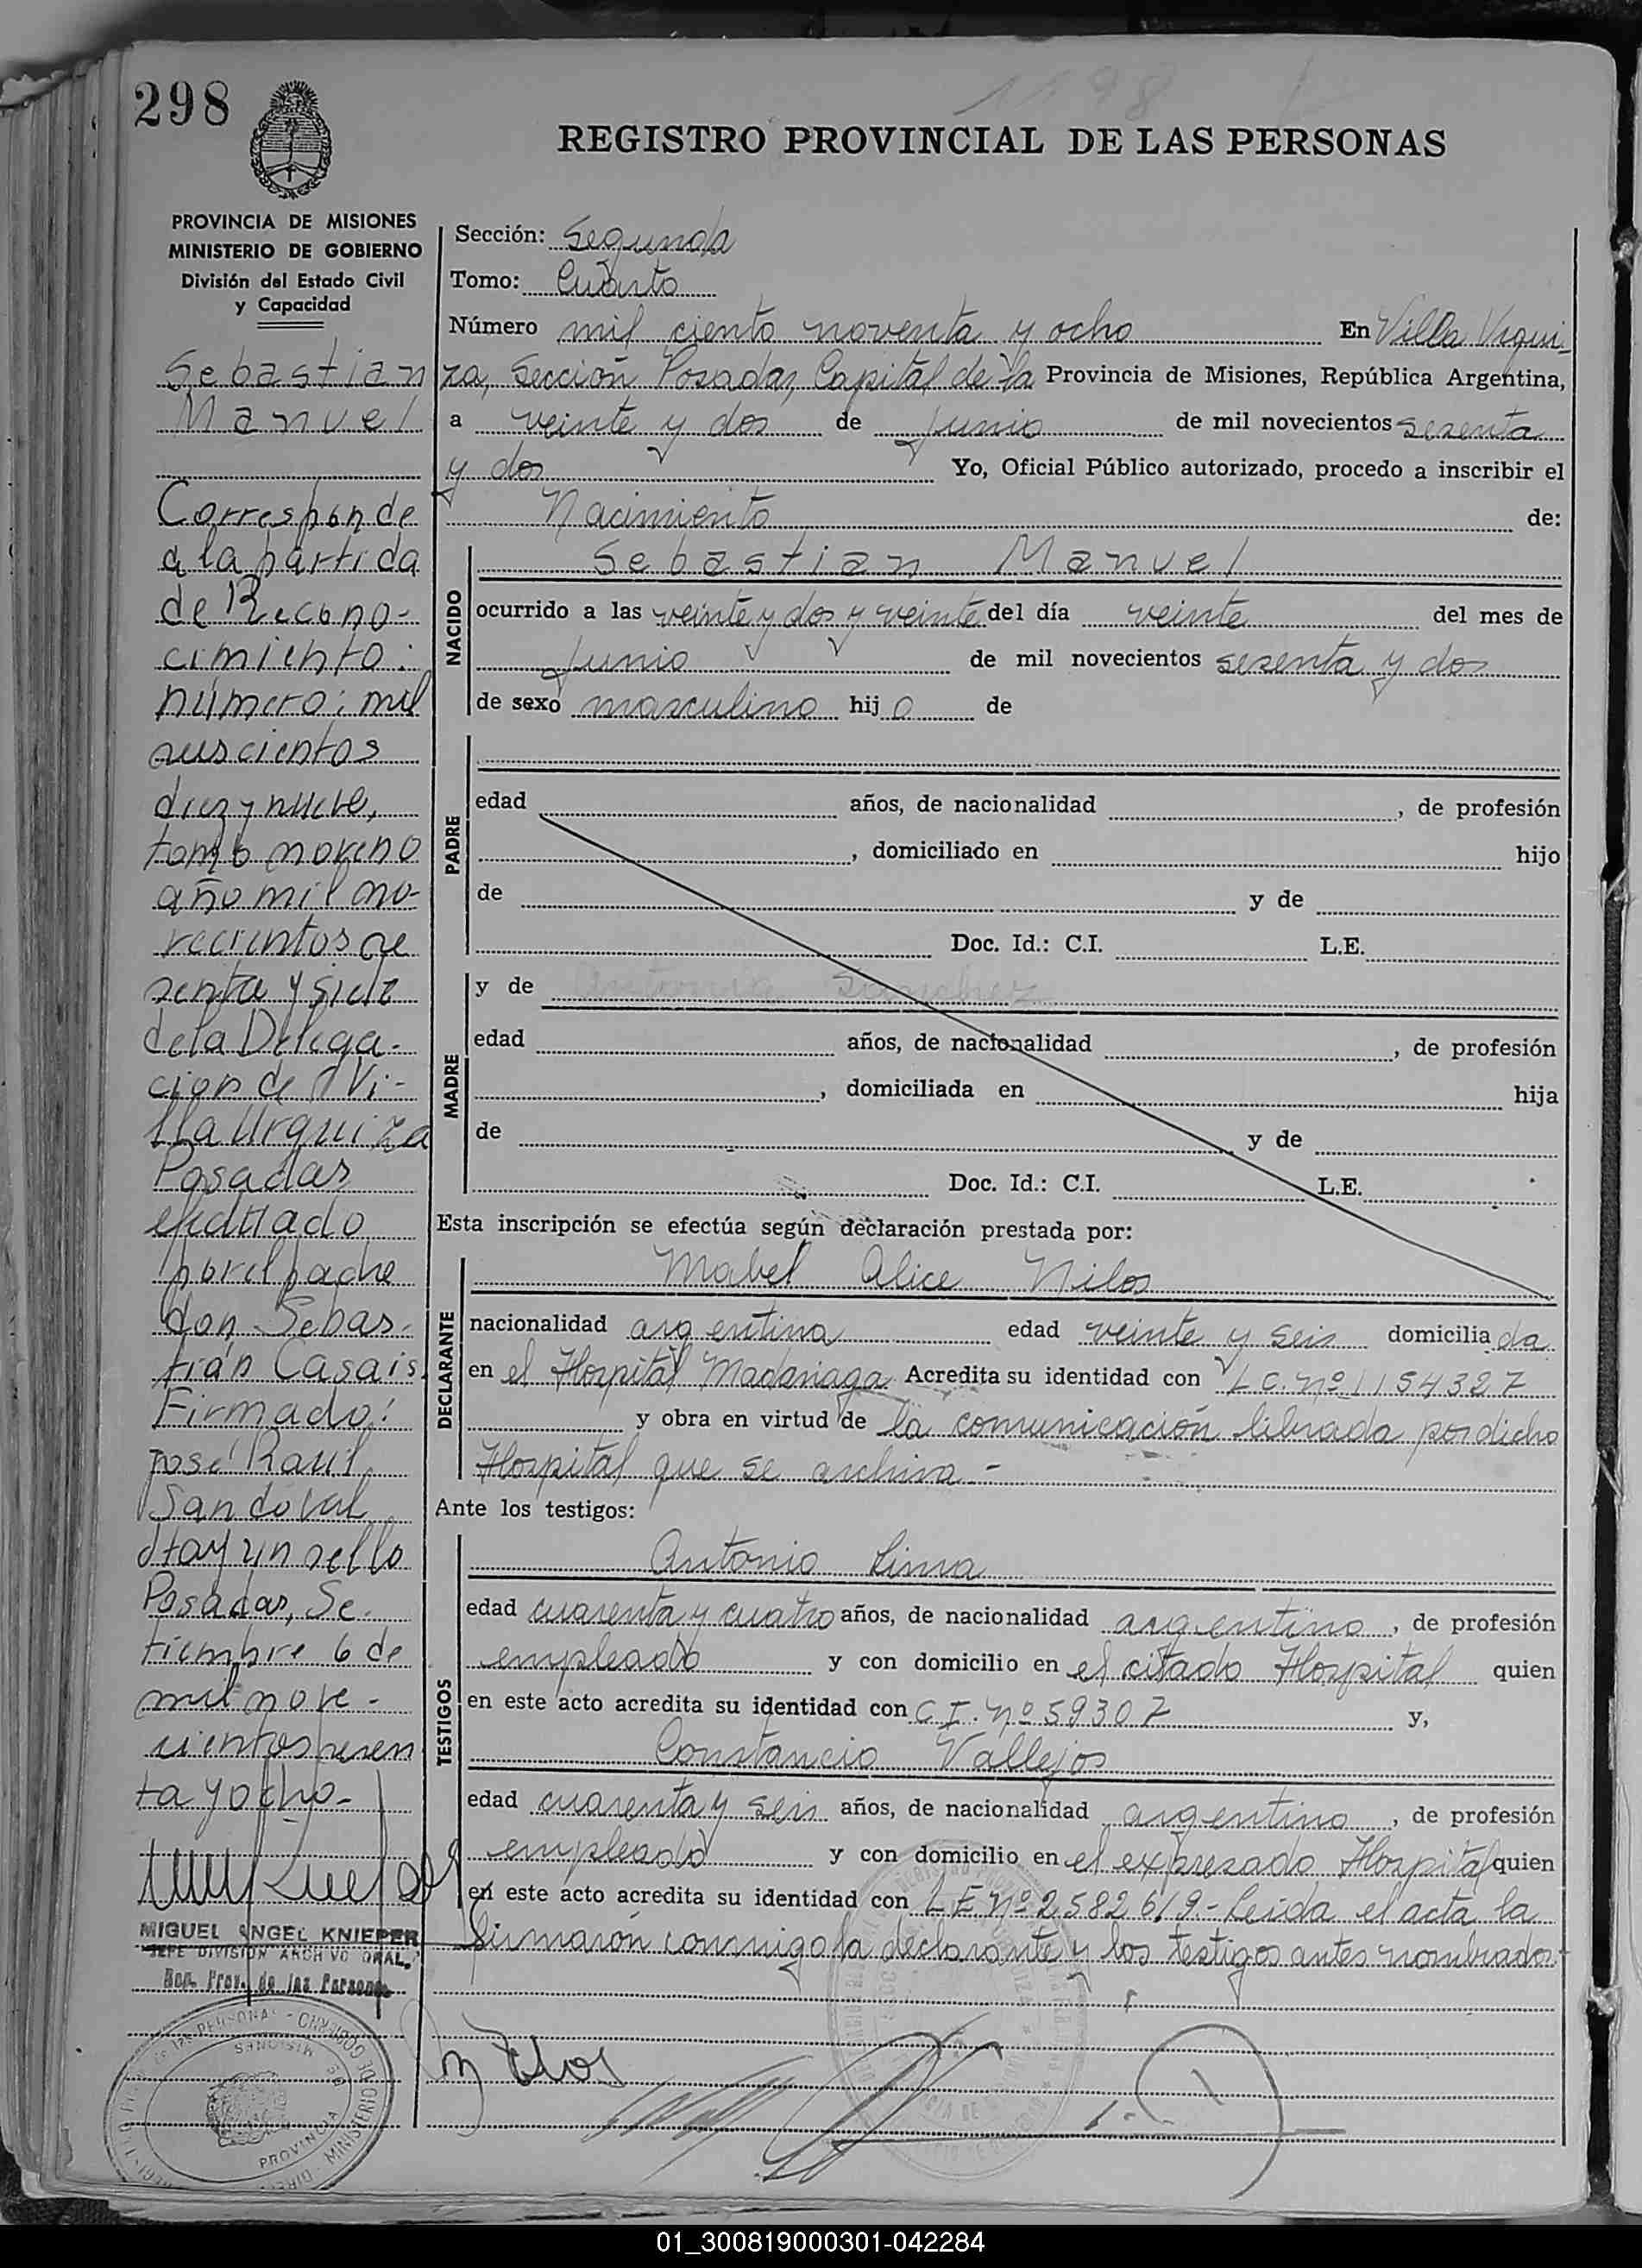 298
1198
REGISTRO PROVINCIAL DE LAS PERSONAS
PROVINCIA DE MISIONES
MINISTERIO DE GOBIERNO
División del Estado Civil
y Capacidad
Sebastian
Manuel
Corresponde
a la partida
de Recono-
cimiento:
número: mil
seiscientos
diez y nueve,
tomo noveno
año mil no-
vecientos se
senta y siete
de la Delega-
cion de Vi-
lla Urquiza
Posadas
efectuado
por el padre
don Sebas-
tián Casais.
Firmado:
José Raúl
Sandoval
Hay un sello
Posadas, Se-
tiembre 6 de
mil nove-
cientos sesen
ta y ocho-
MIGUEL ANGEL KNIEPER
JEFE DIVISION ARCHIVO GRAL.
Reg. Prov. de las Personas
Sección: Segunda
Tomo: Cuarto
Número mil ciento noventa y ocho En Villa Urqui-
za, Sección Posadas, Capital de la Provincia de Misiones, República Argentina,
a veinte y dos de junio de mil novecientos sesenta
y dos Yo, Oficial Público autorizado, procedo a inscribir el
Nacimiento de:
NACIDO
Sebastian Manuel
ocurrido a las veinte y dos y veinte del día veinte del mes de
junio de mil novecientos sesenta y dos
de sexo masculino hijo de
PADRE
edad años, de nacionalidad , de profesión
, domiciliado en hijo
de y de
Doc. Id.: C.I. L.E.
MADRE
y de Antonia Sanchez
edad años, de nacionalidad , de profesión
, domiciliada en hija
de y de
Doc. Id.: C.I. L.E.
Esta inscripción se efectúa según declaración prestada por:
DECLARANTE
Mabel Alice Nilos
nacionalidad argentina edad veinte y seis domiciliada
en el Hospital Madariaga Acredita su identidad con L C. Nº 1154327
y obra en virtud de la comunicación librada por dicho
Hospital que se archiva.-
Ante los testigos:
TESTIGOS
Antonio Lima
edad cuarenta y cuatro años, de nacionalidad argentino, de profesión
empleado y con domicilio en el citado Hospital quien
en este acto acredita su identidad con C I. Nº 59307 y,
Constancio Vallejos
edad cuarenta y seis años, de nacionalidad argentino, de profesión
empleado y con domicilio en el expresado Hospital quien
en este acto acredita su identidad con L E Nº 2582619.- Leída el acta la
firmarón conmigo la declarante y los testigos antes nombrados.-
01_300819000301-042284